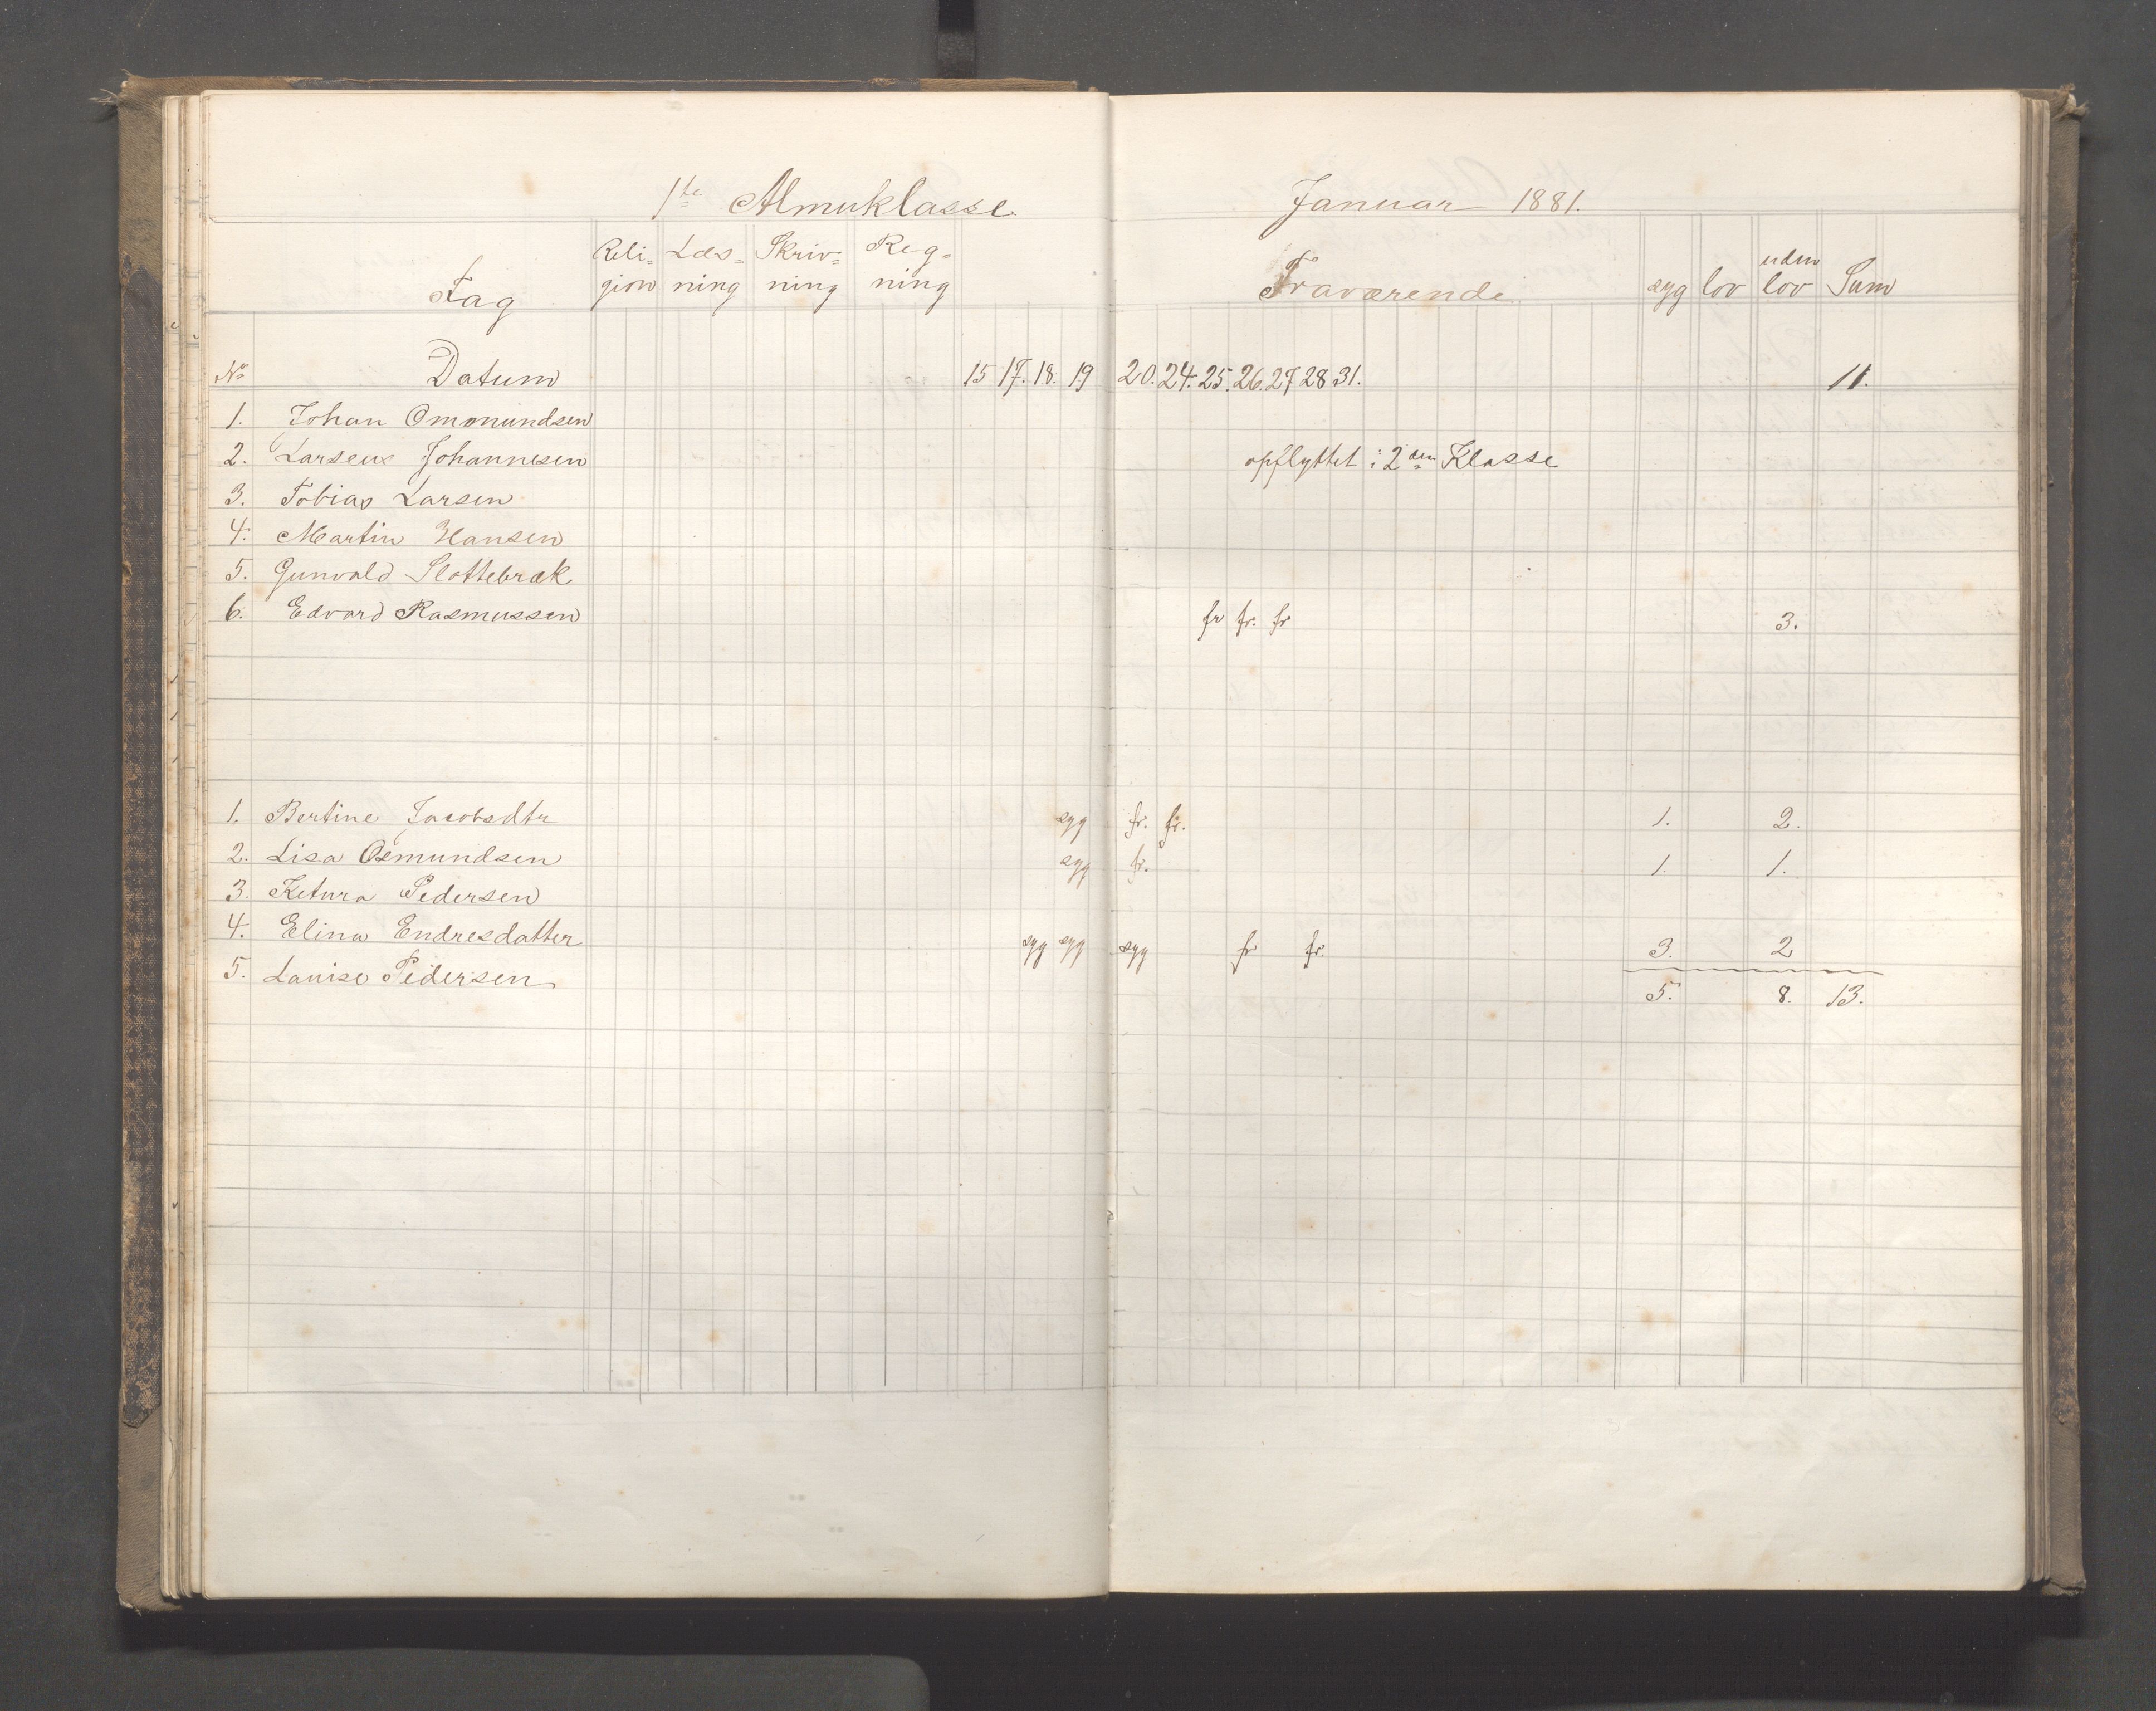 1ste Almuklasse Januar 1881.
Fag Reli= Læs= Skriv= Reg= Fraværende syg lov uden Sum
gion ning ning ning lov
No Datum 15 17. 18. 19 20. 24. 25. 26. 27 28 31. 11.
1. Johan Ommundsen
2. Larsene Johannesen opflyttet i 2den Klasse
3. Tobias Larsen
4. Martin Hansen
5. Gunvald Slottebræk
6. Edvard Rasmussen fr fr. fr 3.
1. Bertine Jacobsdtr syg fr. fr. 1. 2.
2. Lisa Osmundsen syg fr. 1. 1.
3. Ketura Pedersen
4. Elina Endresdatter syg syg syg fr fr. 3. 2
5. Lauise Pedersen 5. 8. 13.